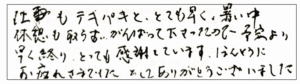 仕事もテキパキと、とても早く、暑い中
休憩も取らず、がんばって下さったので予定より
早く終り、とっても感謝しています。ほんとうに
お疲れさまでした そしてありがとうございました